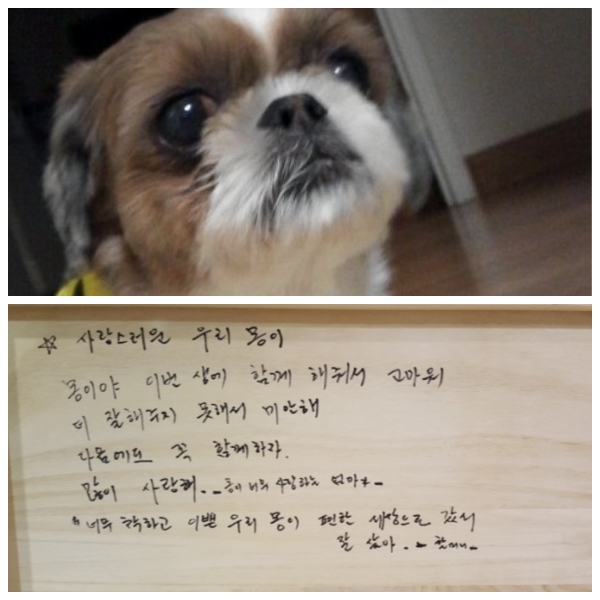 ☆ 사랑스러운 우리 몽이
몽이야 이번 생에 함께 해줘서 고마워
더 잘해주지 못해서 미안해
다음에도 꼭 함께하자.
많이 사랑해..
"너무 착하고 이쁜 우리 몽이 편한 세상으로 가서
잘 살아..